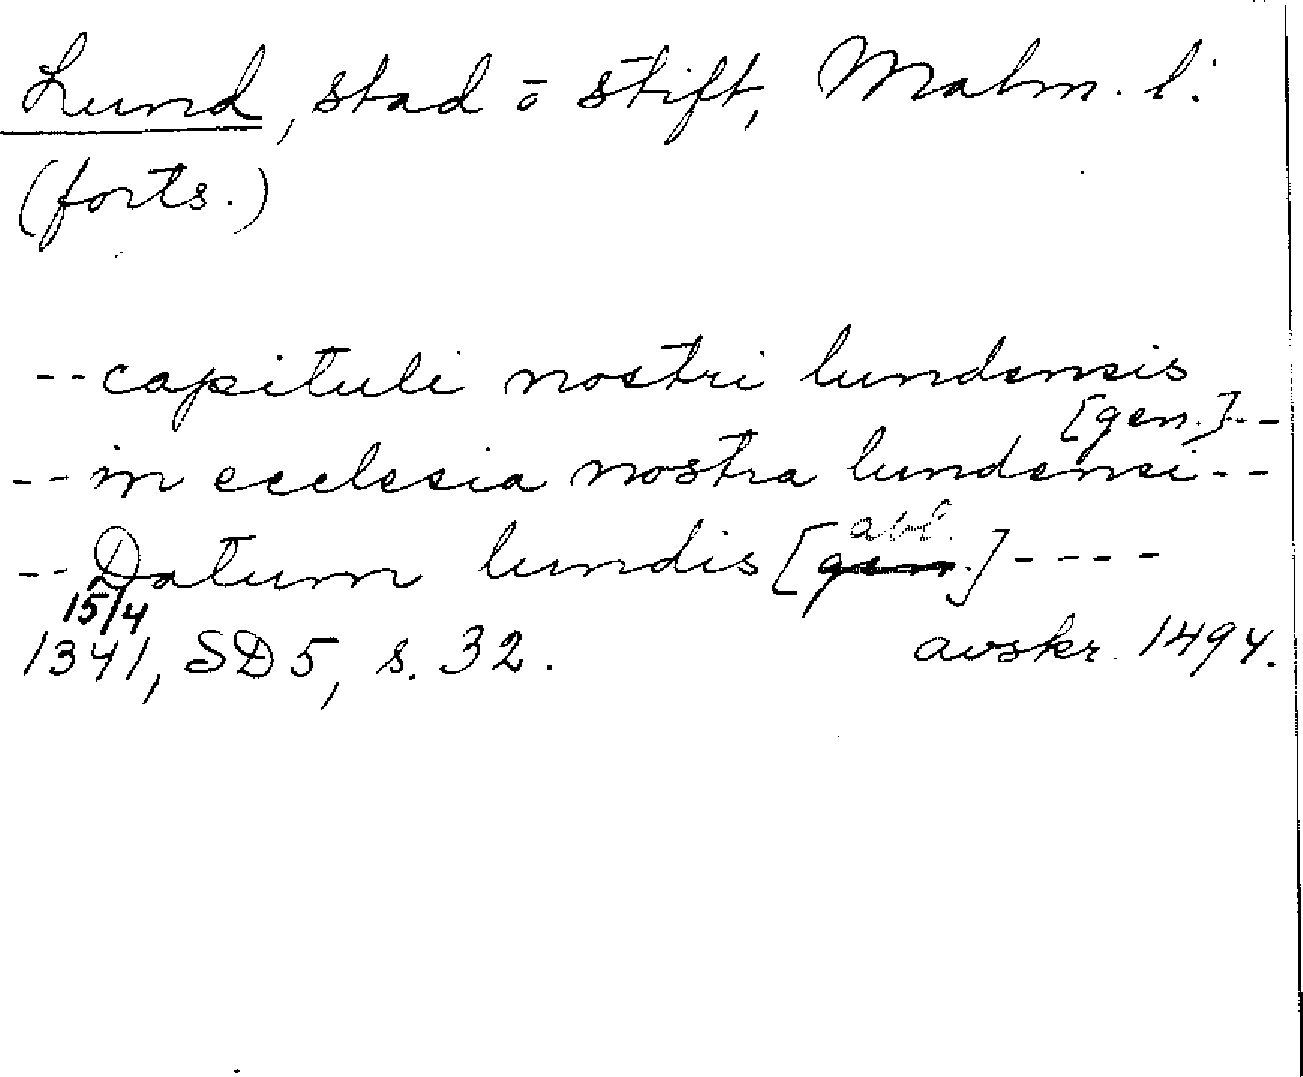 Lund, stad o stift, Malm. l:
(forts.)
--capituli nostri lundensis
[gen.]--
--in ecclesia nostra lundensi--
abl.
--Datum lundis [gen.]----
15/4
1341, SD5, s. 32. avskr. 1494.